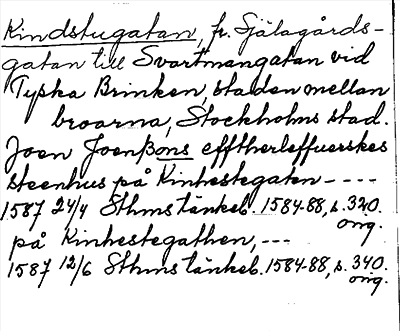 Kindstugatan, fr. Själagårds-
gatan till Svartmangatan vid
Tyska Brinken, staden mellan
broarna, Stockholms stad.
Joen Joenßons efftherleffuerskes
steenhus på Kinhestegaten ----
1587 24/4 Sthms tänkeb. 1584-88, s. 320.
orig.
på Kinhestegathen, ---
1587 12/6 Sthms tänkeb. 1584-88, s. 340.
orig.